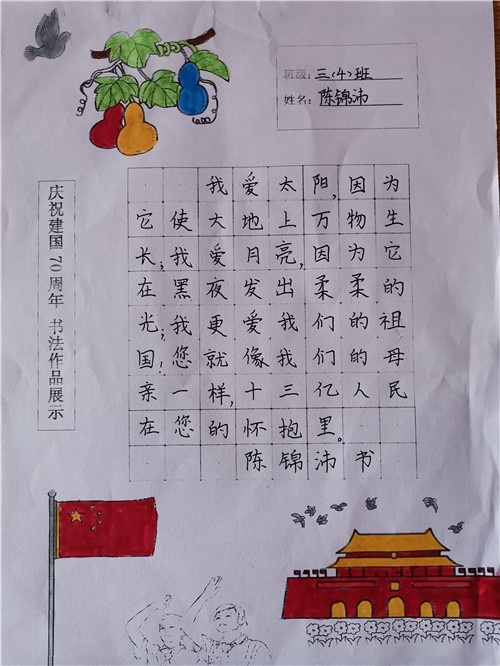 班级：三（4）班
姓名：陈锦沛
庆祝建国70周年 书法作品展示
我爱太阳，因为
它使大地上万物生
长；我爱月亮，因为它
在黑夜发出柔柔的
光；我更爱我们的祖
国，您就像我们的母
亲一样，十三亿人民
在您的怀抱里。
陈锦沛书